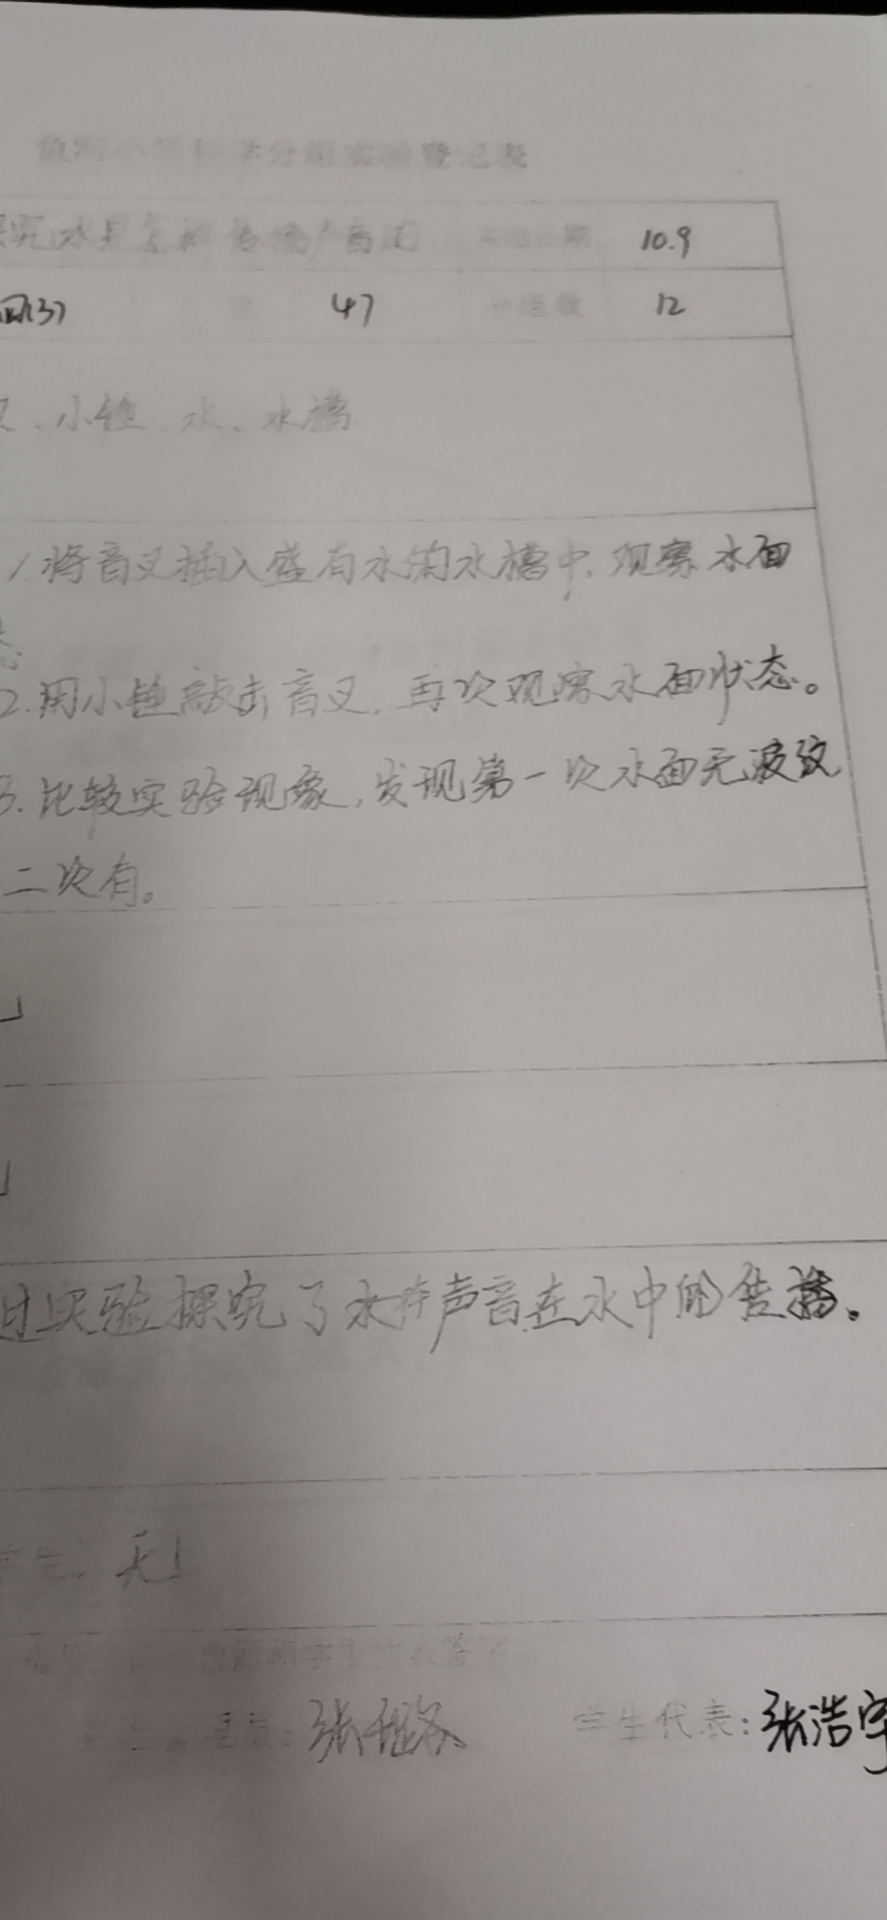 小学科学分组实验登记表
究水是怎样传播声音的 实验日期 10.9
四(3) 47 分组数 12
、小锤、水、水槽
1.将音叉插入盛有水的水槽中,观察水面
态
2.用小锤敲击音叉,再次观察水面状态。
3.比较实验现象,发现第一次水面无波纹
二次有。
过实验探究了水声音在水中的传播.
学生:无
张 学生代表:张浩宇